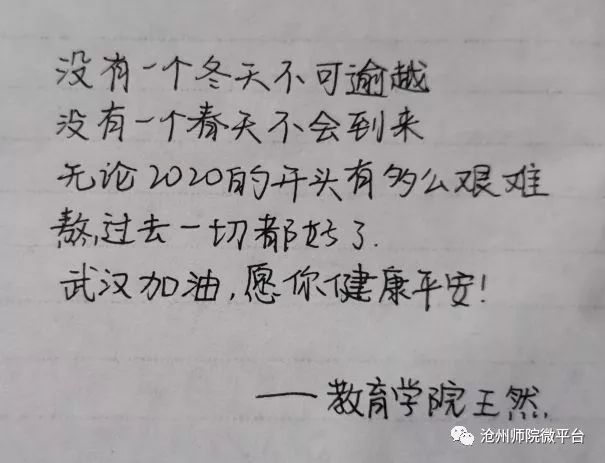 没有一个冬天不可逾越
没有一个春天不会到来
无论2020的开头有多么艰难
熬过去一切都好了.
武汉加油,愿你健康平安!
——教育学院王然.
沧州师院微平台